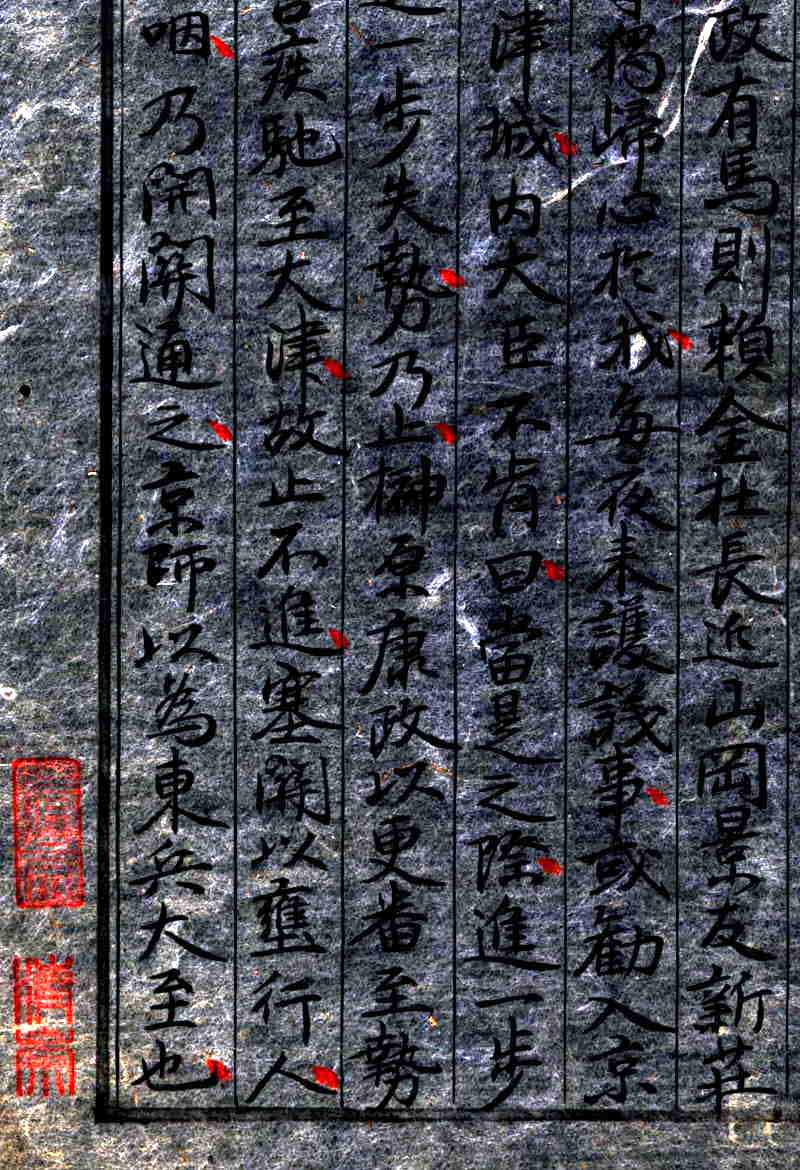 政有馬則賴金杜長近山岡景友新莊
獨歸心於我每夜来護議事或勸入京
津城内大臣不肯曰當是之際進一步
一步失勢乃止榊原康政以更番至勢
疾馳至大津故止不進塞關以壅行人
咽乃開關通之京師以為東兵大至也